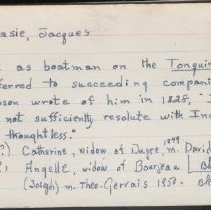 asie, Jacques
as boatman on the Tonquin
ferred to succeeding compani
son wrote of him in 1828, "I
not sufficiently resolute with In
thoughtless."
?) Catherine, widow of Dupre, 1844 m. David
) Angelle, widow of Bourjeau
(Joseph) m. Theo. Gervais 1850.